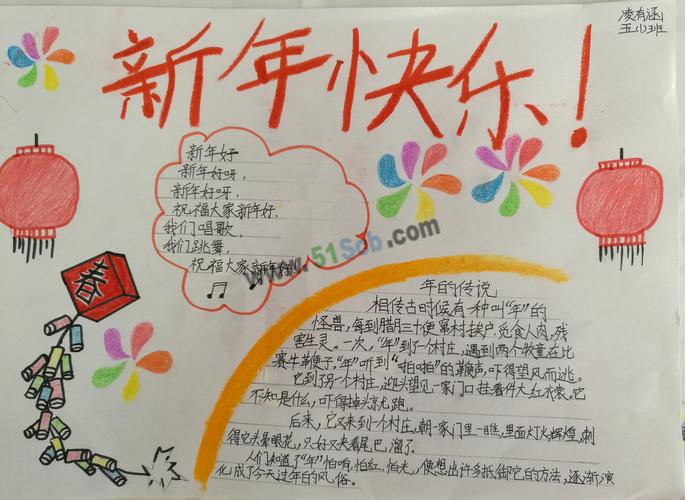 凌有涵
五(1)班
新年快乐!
新年好
新年好呀,
新年好呀,
祝福大家新年好.
我们唱歌,
我们跳舞,
祝福大家新年好!
www.51Scb.com
春
年的传说
相传古时候有一种叫“年”的
怪兽,每到腊月三十便窜村挨户,觅食人肉,残
害生灵。一次,“年”到了一个村庄,遇到两个牧童在比
赛牛鞭子。“年”听到“啪啪”的鞭声,吓得望风而逃。
它到了另一个村庄,迎头望见一家门口挂着件大红衣裳。它
不知是什么,吓得掉头就跑。
后来,它又来到一个村庄,朝一家门里一瞧,里面灯火辉煌,刺
得它头晕眼花,只好又夹着尾巴溜了。
人们知道了“年”怕响,怕红,怕光,便想出许多抵御它的方法,逐渐演
化成了今天过年的风俗。